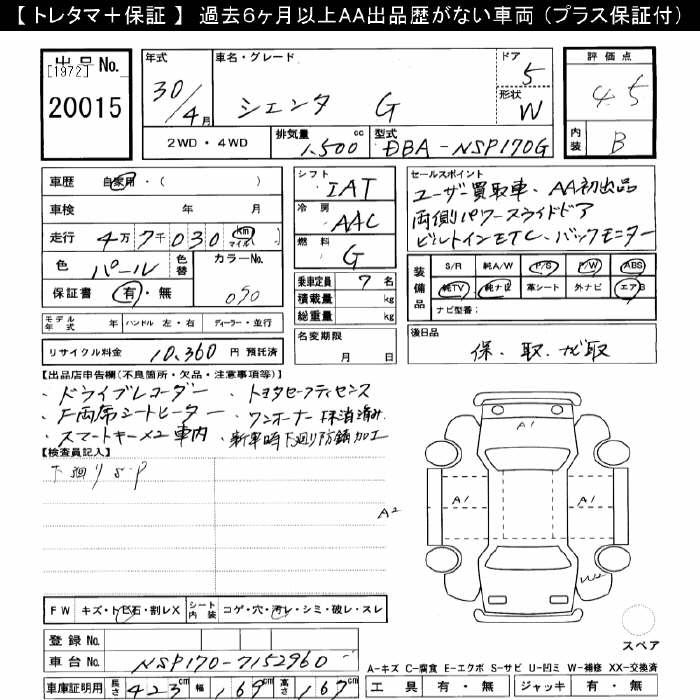 【 トレタマ＋保証 】 過去６ヶ月以上AA出品歴がない車両（プラス保証付）
出品 No.
[1972]
20015
年式
30/4月
車名・グレード
シエンタ G
ドア
5
形状
W
評価点
4.5
内装
B
2WD・4WD
排気量
1,500 cc
型式
DBA-NSP170G
車歴 自家用・（ ）
車検 年 月
走行 4万7千030 km マイル（ ）
色 パール 色替 カラーNo. 070
保証書 有・無
モデル年式 年 ハンドル 左・右 ディーラー・並行
リサイクル料金 10,360 円 預託済
シフト
IAT
冷房
AAC
燃料
G
乗車定員 7 名
積載量 kg
総重量 kg
名変期限
月 日
セールスポイント
ユーザー買取車、AA初出品
両側パワースライドドア
ビルトインETC、バックモニター
装備品
S/R 純A/W P/S P/W ABS
純TV 純ナビ 革シート 外ナビ エアB
ナビ型番：
後日品
保、取、ナビ取
【出品店申告欄(不良箇所・欠品・注意事項等)】
・ドライブレコーダー ・トヨタセーフティセンス
・F両席シートヒーター ・ワンオーナー 抹消済み
・スマートキー×2 車内 ・新車時下廻り防錆加工
【検査員記入】
下廻り S.P
A1
A1
A1
A2
FW キズ・トビ石・割レX シート内装 コゲ・穴・汚レ・シミ・破レ・スレ
登録 No.
車台 No. NSP170-7152960
車庫証明用 長さ 423 cm 幅 169 cm 高さ 167 cm
スペア
A-キズ C-腐食 E-エクボ S-サビ U-凹ミ W-補修 XX-交換済
工具 有・無 ジャッキ 有・無